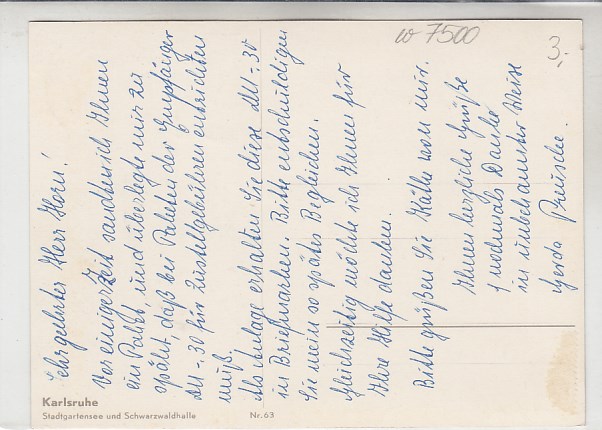 Sehr geehrter Herr Horn!
Vor einiger Zeit sandten ich Ihnen
ein Paket, und überlegte mir zu
spät, daß bei Paketen der Empfänger
DM -.30 für Zustellgebühren entrichten
muß.
Als Anlage erhalten Sie diese DM -.30
in Briefmarken. Bitte entschuldigen
Sie mein so spätes Begleichen.
Gleichzeitig möchte ich Ihnen für
Ihre Hilfe danken.
Bitte grüßen Sie Käthe von mir.
Ihnen herzliche Grüße
& nochmals Danke
in unbekannter Weise
Gerda
w 7500
3,-
Karlsruhe
Stadtgartensee und Schwarzwaldhalle Nr. 63